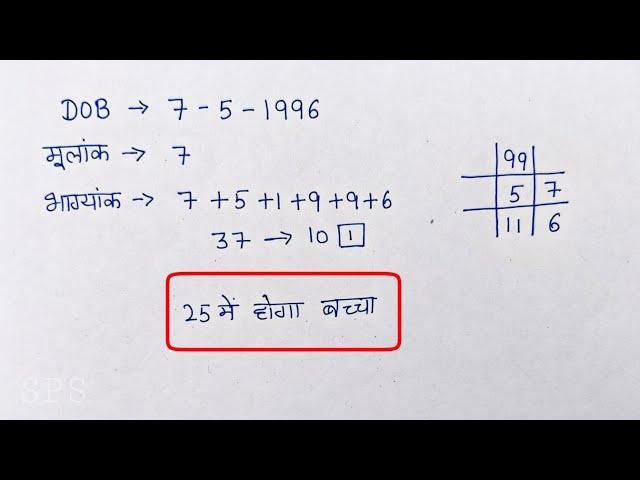 DOB → 7 - 5 - 1996
मूलांक → 7
भाग्यांक → 7 + 5 + 1 + 9 + 9 + 6
37 → 10 1
25 में होगा बच्चा
99
5 7
11 6
SPS